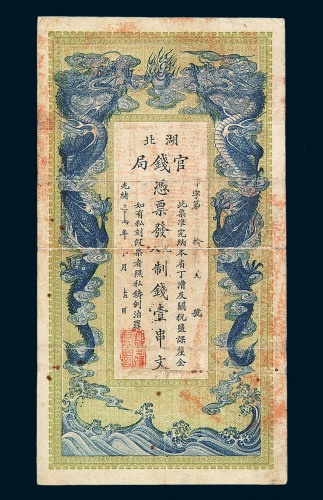 湖北
官錢局
字第拾 號
此票准完納本省丁漕及關稅鹽課釐金
憑票發八制錢壹串文
如有私刻假票者照私鑄例治罪
光緒三十 年八月 日